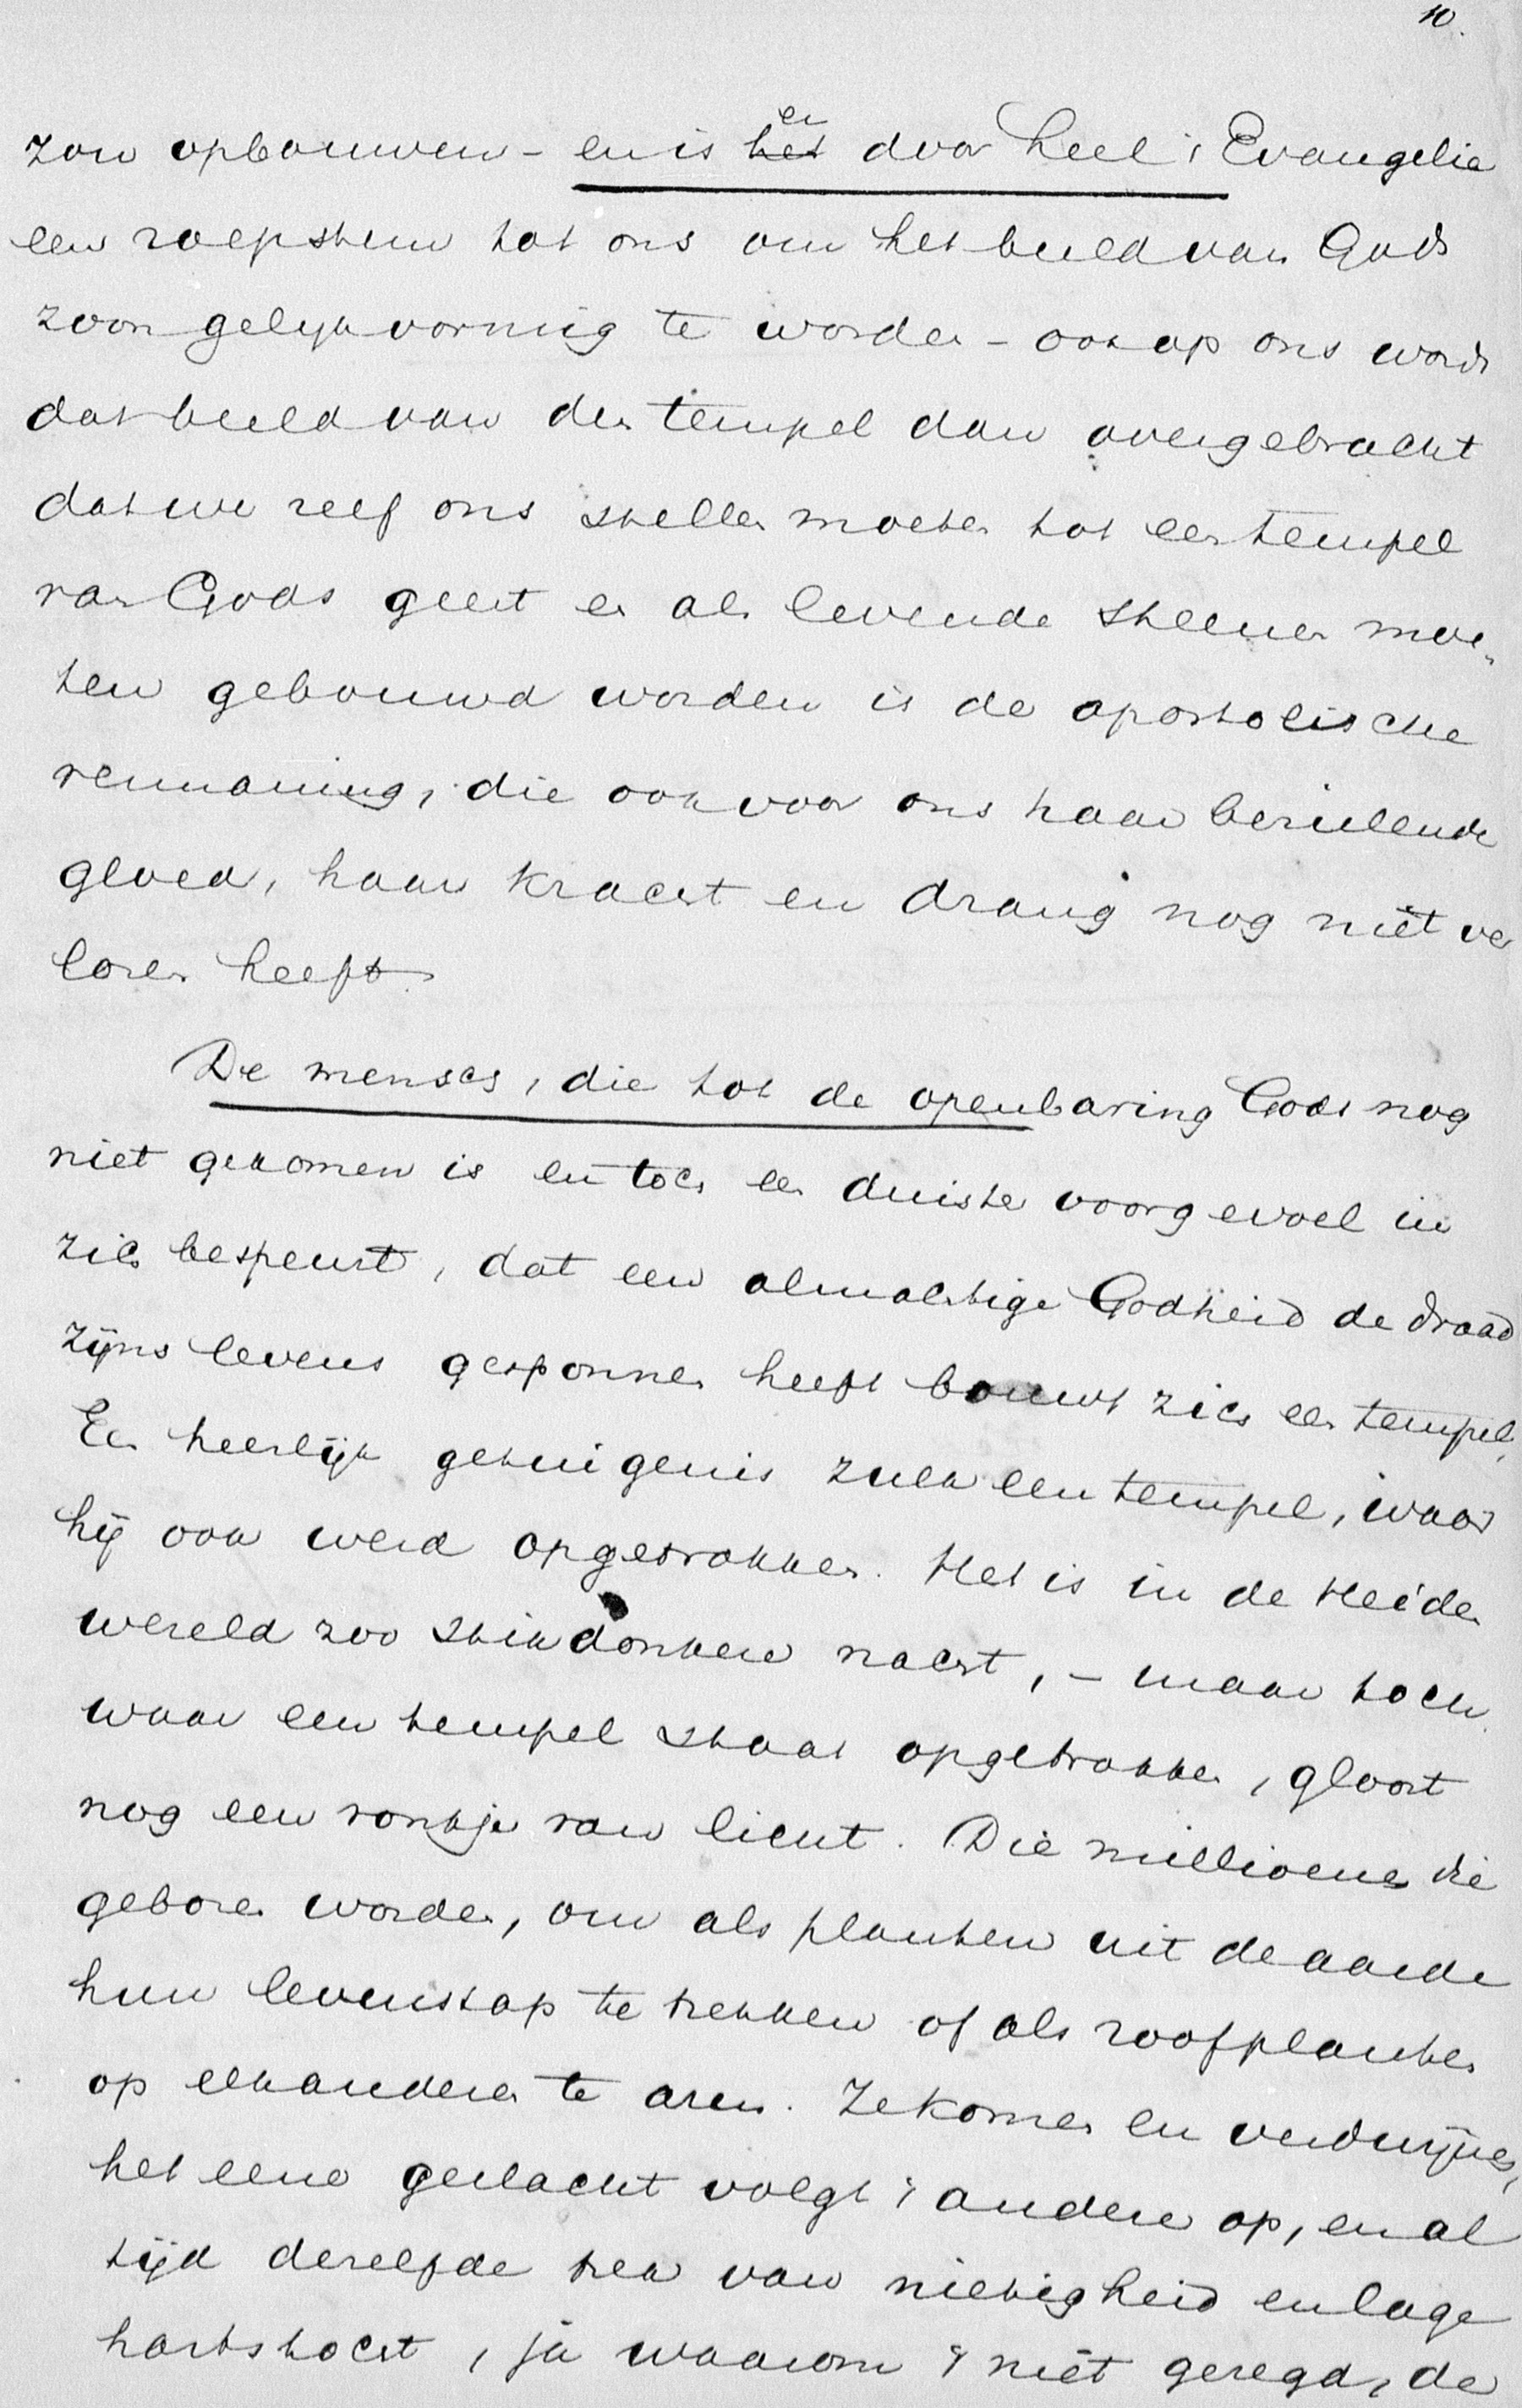 10.
zou opbouwen - en is ~~het~~ er door heel 't Evangelie
een roepstem tot ons om het beeld van Gods
zoon gelijkvormig te worden - ook op ons wordt
dat beeld van den tempel dan overgebracht
dat we zelf ons stellen moeten tot een tempel
van Gods geest en als levende steenen moe-
ten gebouwd worden is de apostolische
vermaning, die ook voor ons haar bezielende
gloed, haar kracht en drang nog niet ver
loren heeft.
De mensch, die tot de openbaring Gods nog
niet gekomen is en toch een duister voorgevoel in
zich bespeurt, dat een almachtige Godheid de draad
zijns levens gesponnen heeft bouwt zich een tempel.
Een heerlijk getuigenis zulk een tempel, waar
hij ook werd opgetrokken. Het is in de Heiden
wereld zoo stikdonkere nacht, - maar toch
waar een tempel staat opgetrokken, gloort
nog een vonkje van licht. Die millioenen die
geboren worden, om als planten uit de aarde
hun levenssap te trekken of als roofplanten
op elkanderen te azen. Ze komen en verdwijnen,
het eene geslacht volgt 't andere op, en al
tijd dezelfde trek van nietigheid en lage
hartstocht, ja waarom 't niet gezegd, de